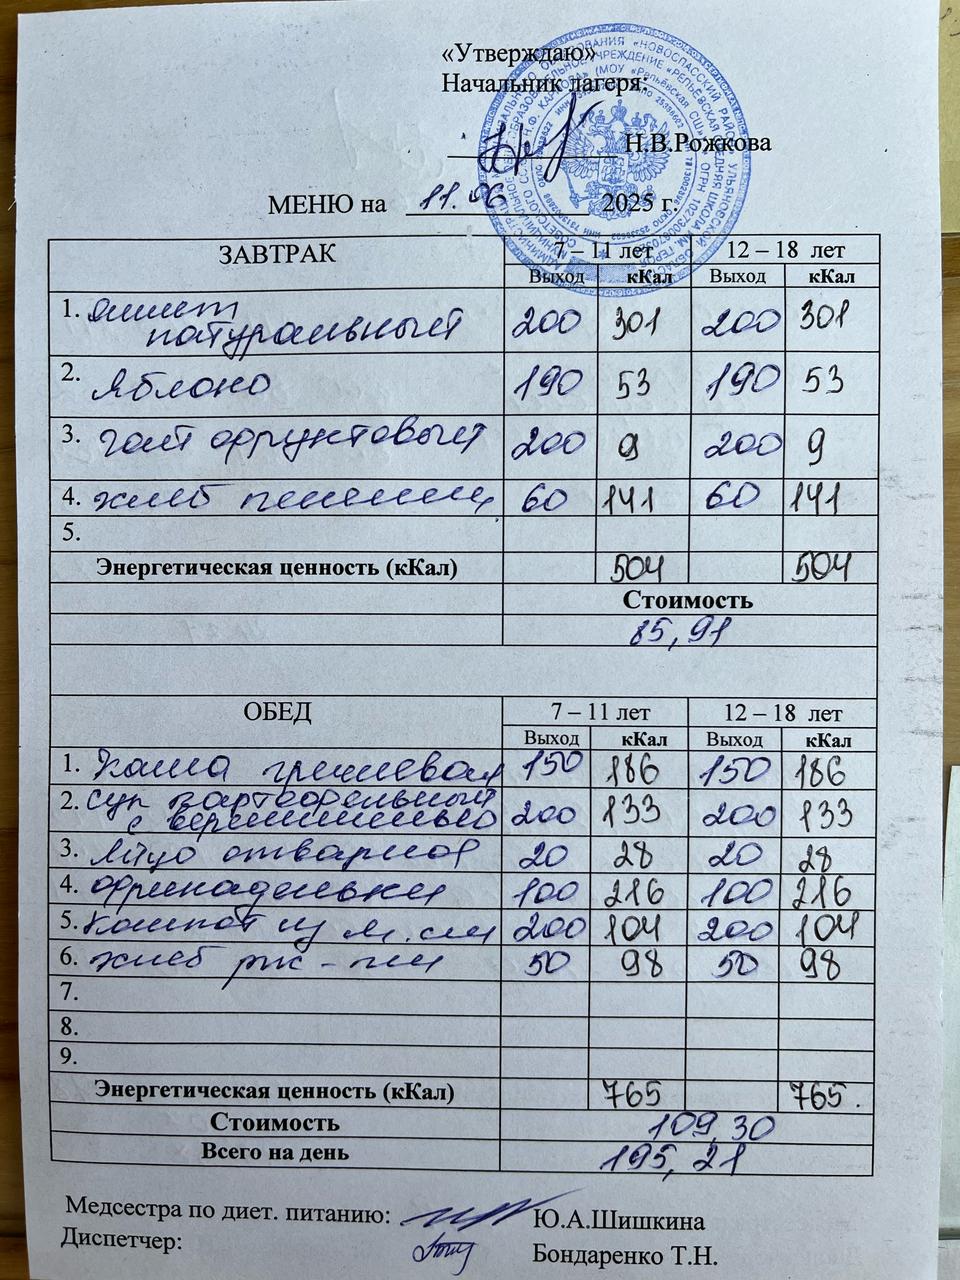 «Утверждаю»
Начальник лагеря:
Н.В.Рожкова
МЕНЮ на 11.06 2025 г.
ЗАВТРАК 7 – 11 лет 12 – 18 лет
Выход кКал Выход кКал
1. омлет натуральный 200 301 200 301
2. яблоко 190 53 190 53
3. чай фруктовый 200 9 200 9
4. хлеб пшенич 60 141 60 141
5.
Энергетическая ценность (кКал) 504 504
Стоимость
85,91
ОБЕД 7 – 11 лет 12 – 18 лет
Выход кКал Выход кКал
1. Каша гречневая 150 186 150 186
2. суп картофельный с вермишелью 200 133 200 133
3. яйцо отварное 20 28 20 28
4. фрикадельки 100 216 100 216
5. компот из 200 104 200 104
6. хлеб рж - пш 50 98 50 98
7.
8.
9.
Энергетическая ценность (кКал) 765 765.
Стоимость 109,30
Всего на день 195,21
Медсестра по диет. питанию: Ю.А.Шишкина
Диспетчер: Бондаренко Т.Н.